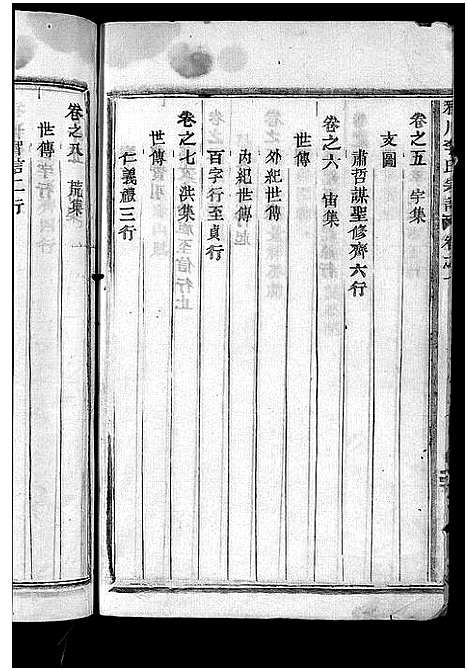 氏宗譜 卷之
卷之五 宇集
支圖
肅哲謀聖修齊六行
卷之六 宙集
世傳
外紀世傳
內紀世傳
百字行至貞行
卷之七 洪集
世傳
仁義禮三行
卷之八 荒集
世傳
智信二行